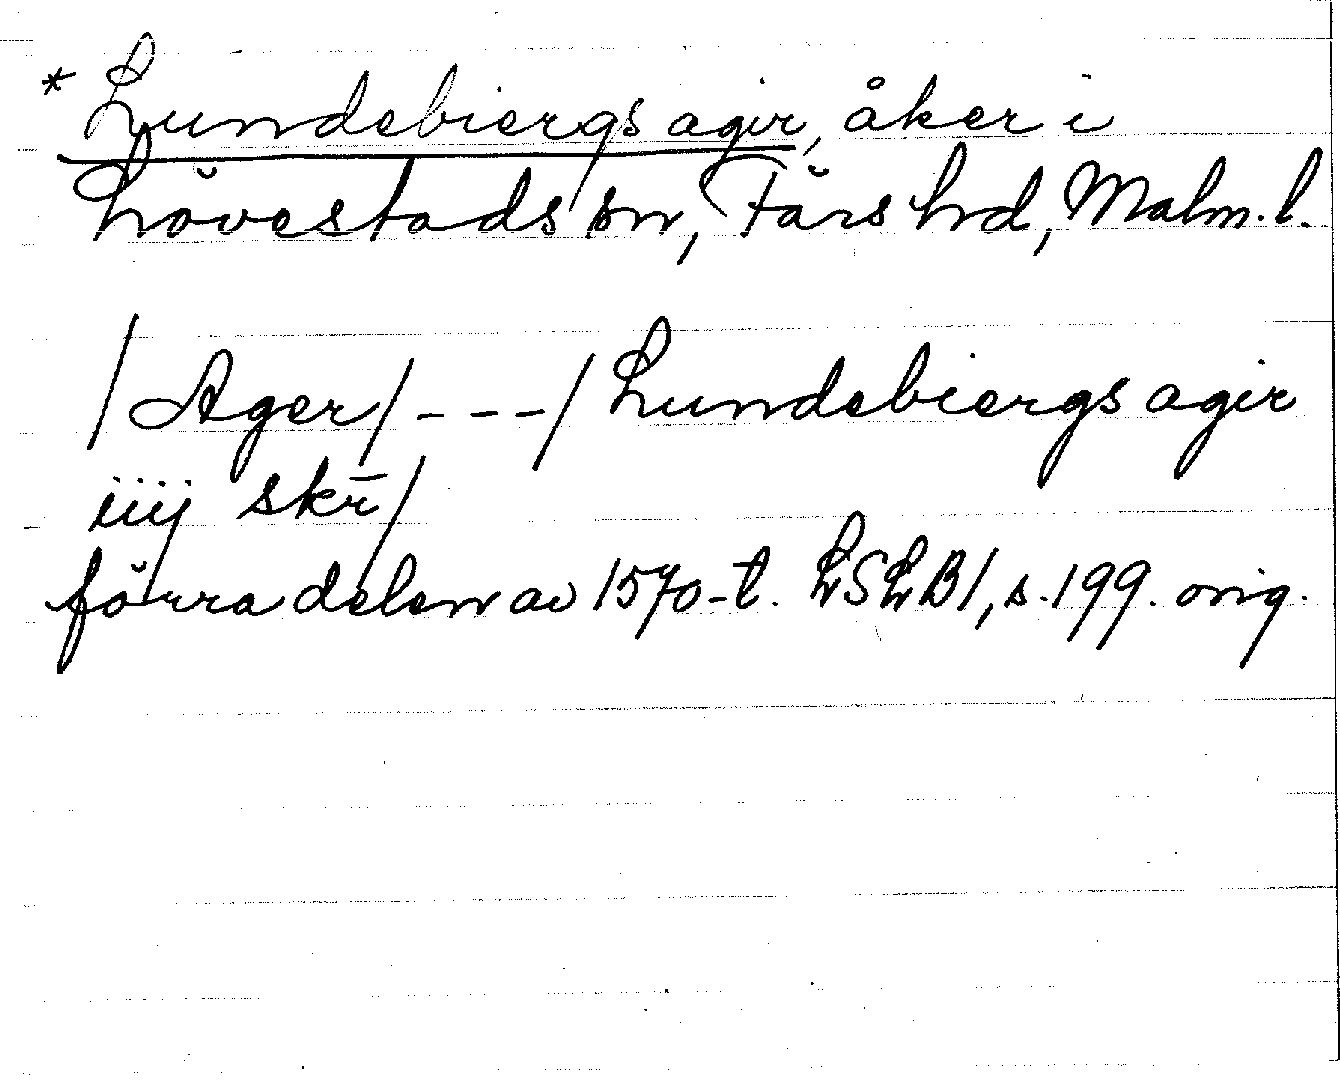 * Lundebiergs agir, åker i
Lövestads sn, Färs hd, Malm. l.
/Ager/---/Lundebiergs agir
iiij skr̄/
förra delen av 1570-t. LSLB1, s. 199. orig.